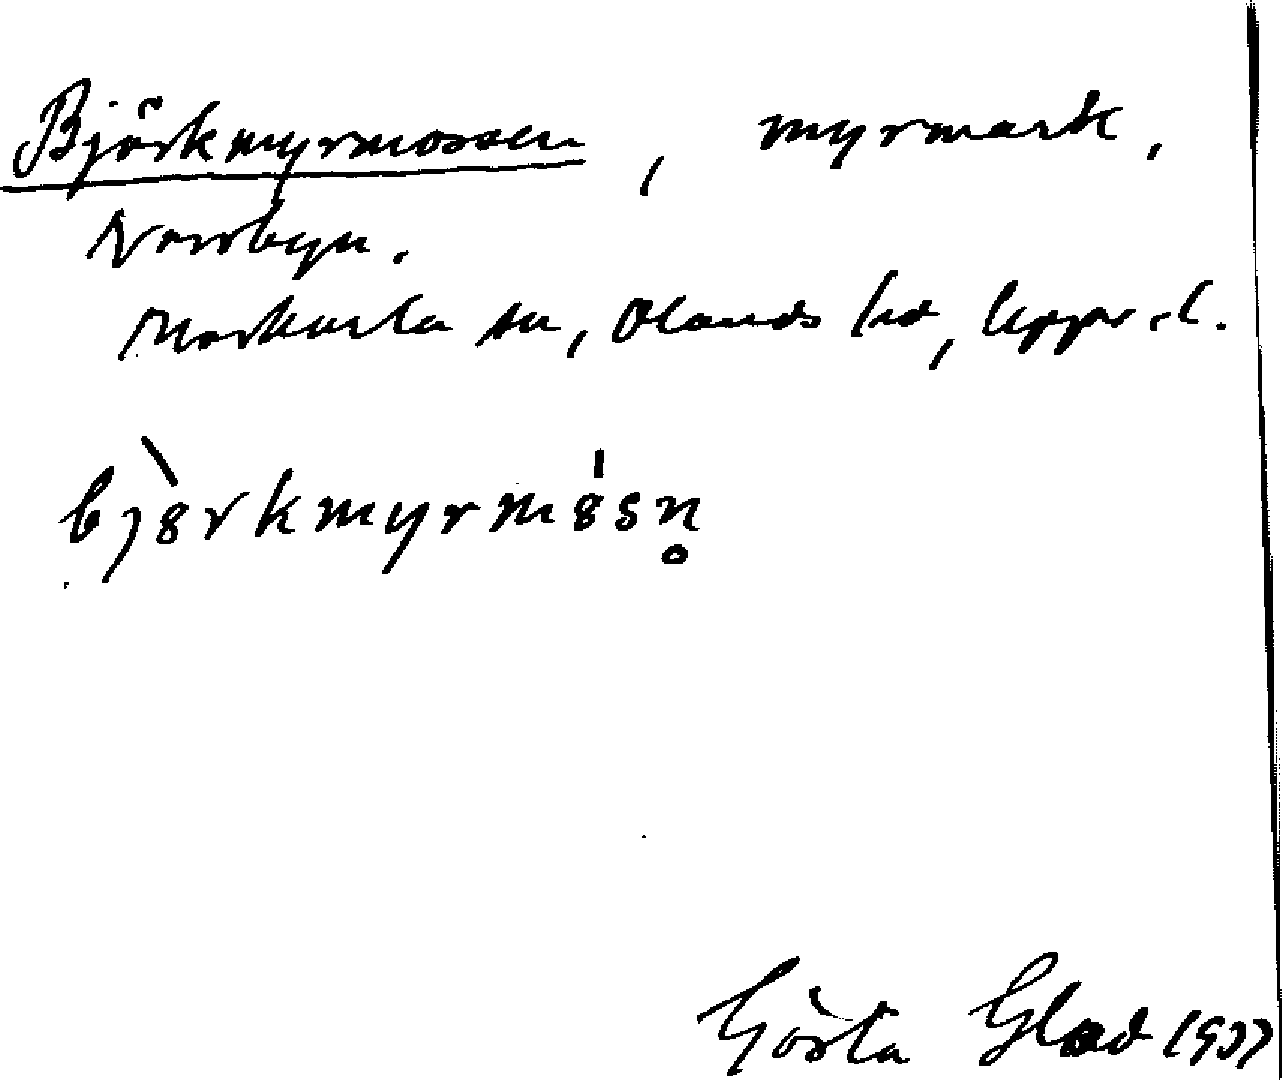 Björkmyrmossen, myrmark,
Norrbyn.
Morkarla sn, Olands hd, Upps. l.
björkmyrmösn̥
Gösta Glad 1937